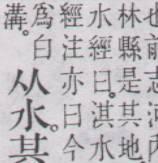 也前志河內
林縣是其地
水經曰。淇水
經注亦曰今
爲白
溝。
从水其